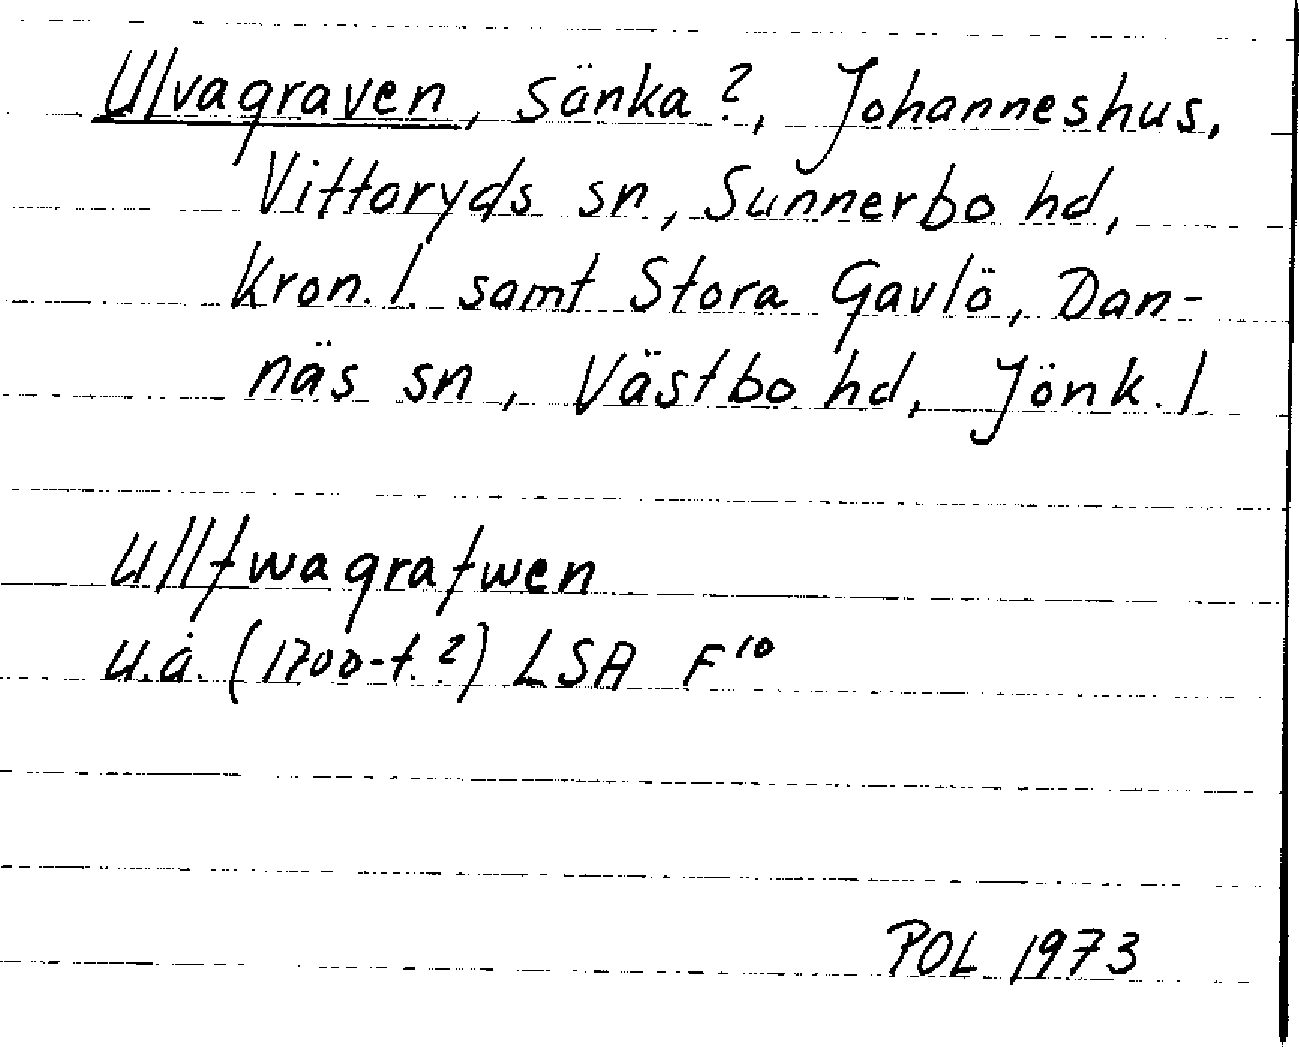 Ulvagraven, sänka?, Johanneshus,
Vittaryds sn, Sunnerbo hd,
Kron. l. samt Stora Gavlö, Dan-
näs sn, Västbo hd, Jönk. l
Ullfwagrafwen
u.å. (1700-t.?) LSA F¹⁰
POL 1973